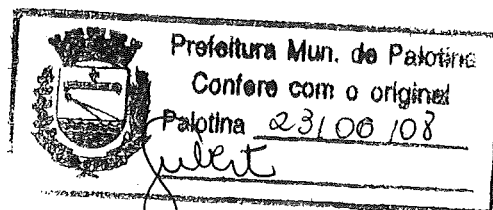 Prefeitura Mun. de Palotina
Confere com o original
Palotina 23/06/08